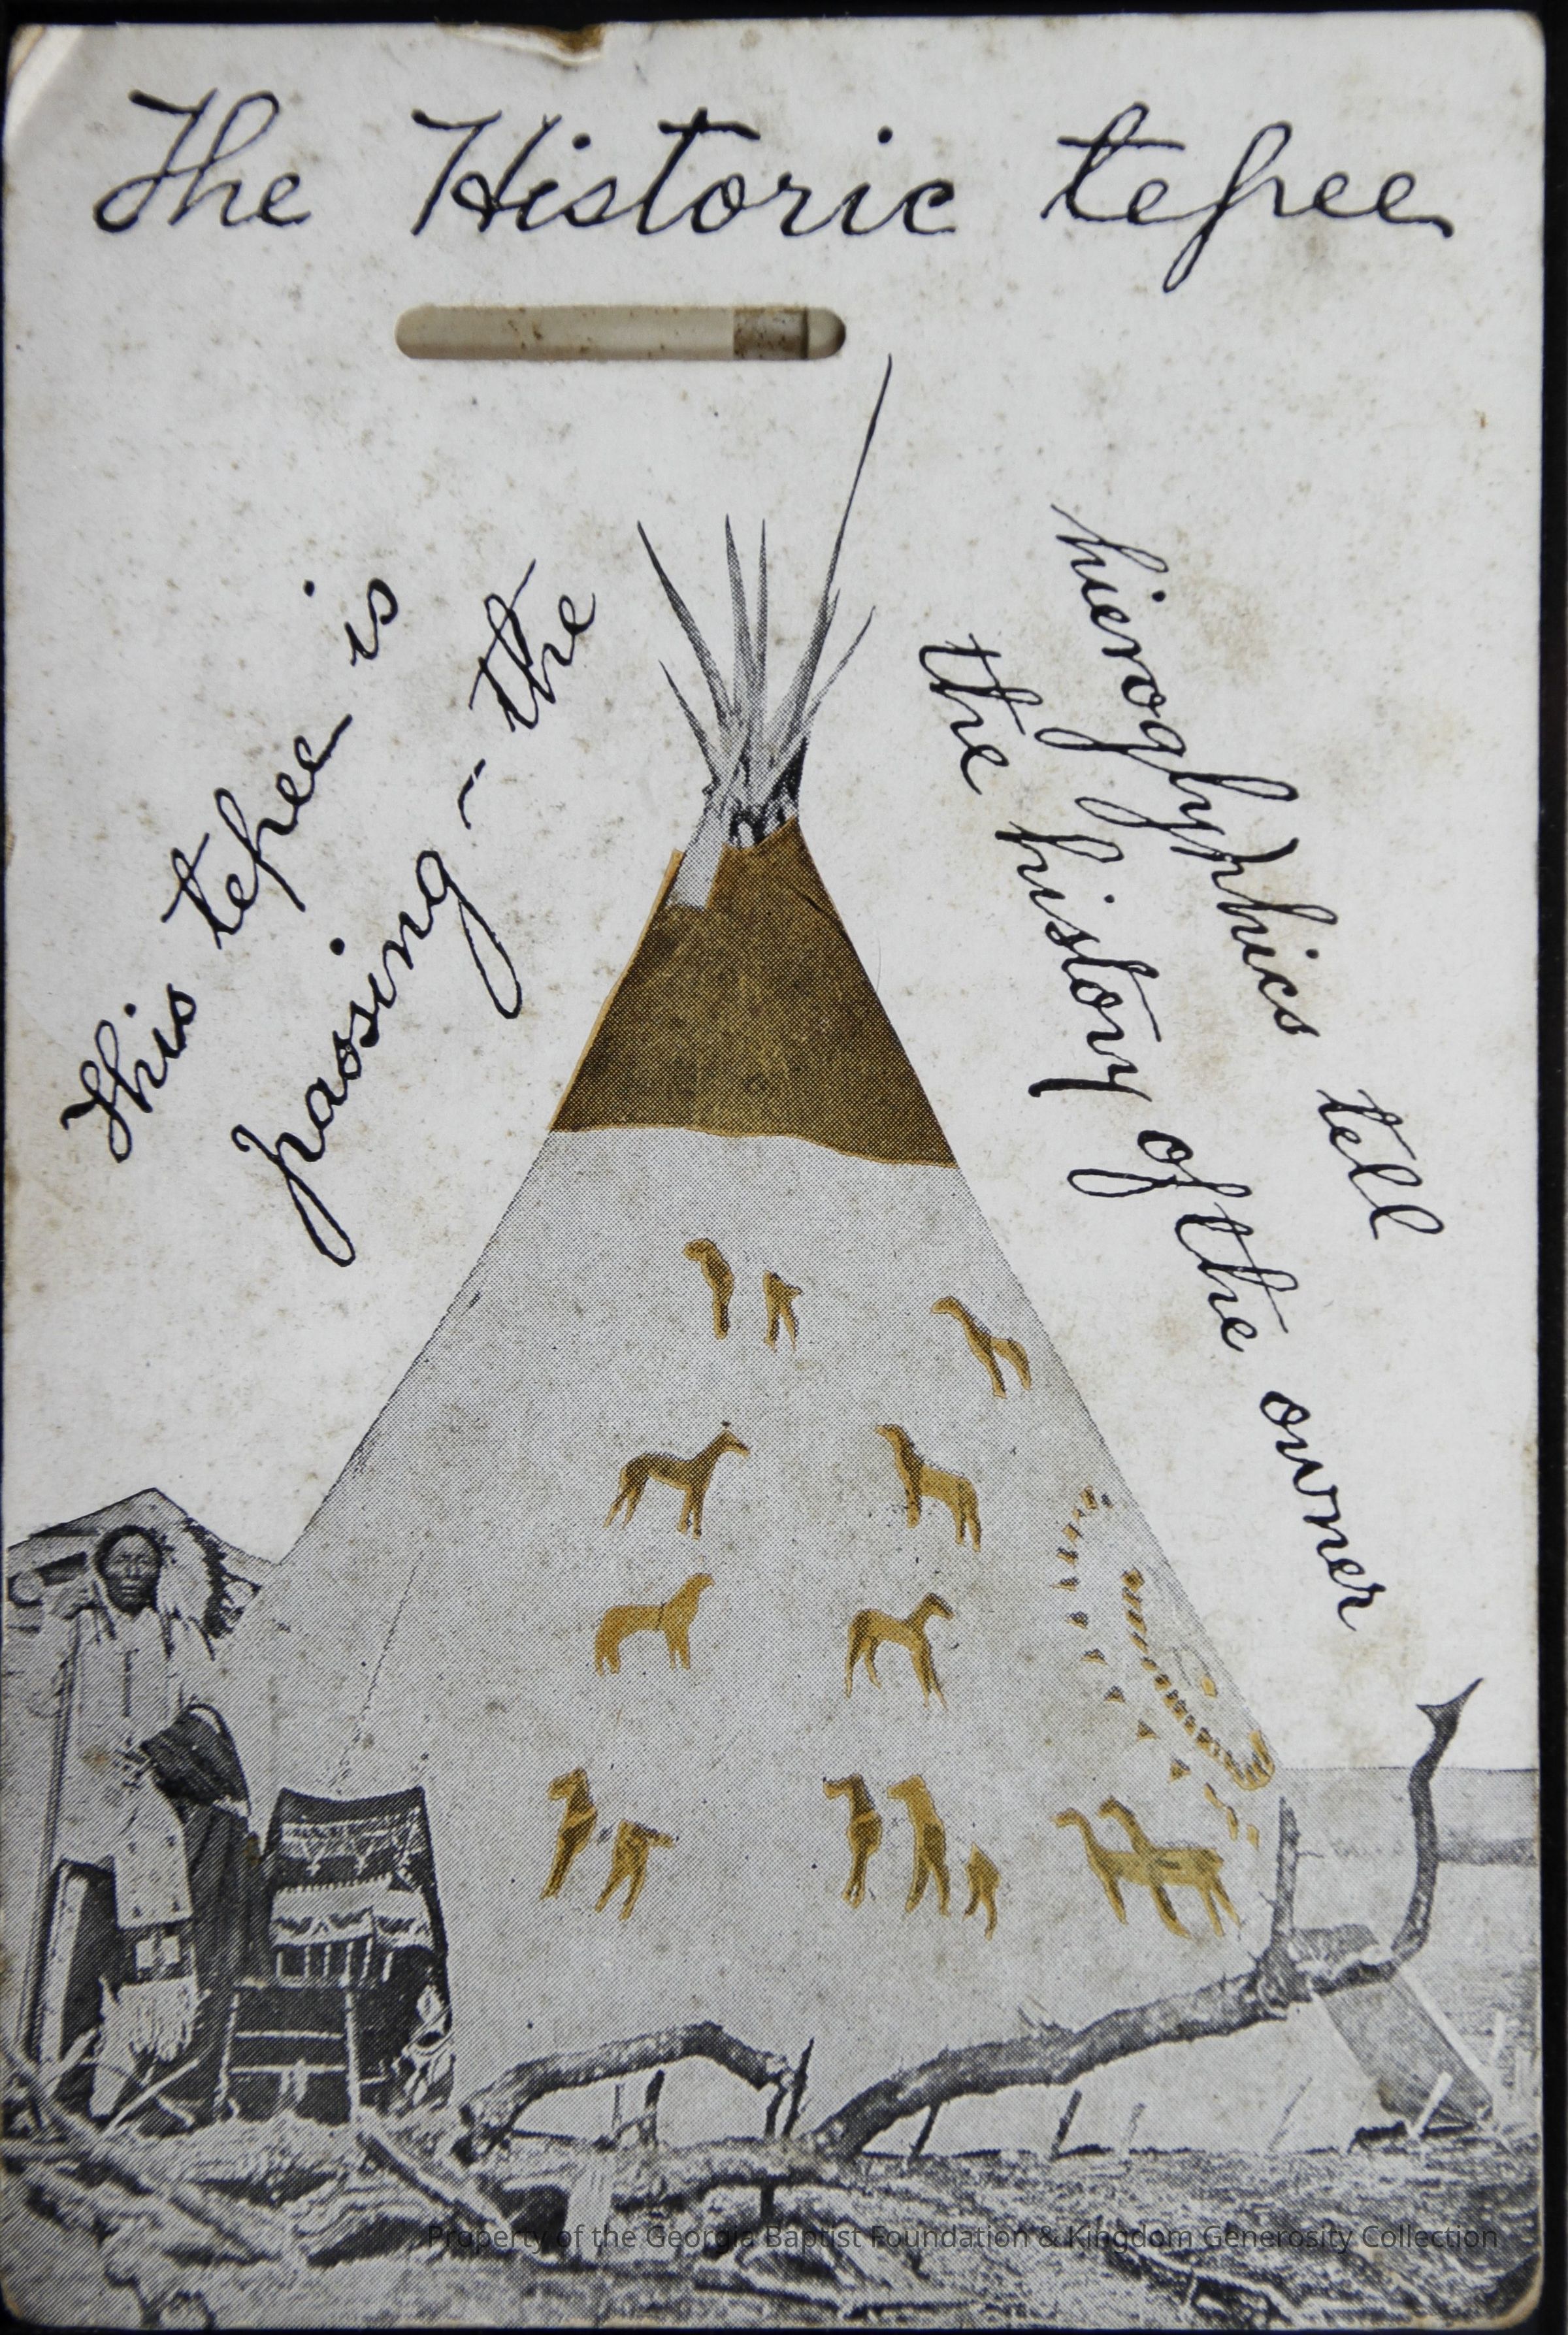 The Historic tepee
This tepee is
passing - the
hieroglyphics tell
the history of the owner
Property of the Georgia Baptist Foundation & Kingdom Generosity Collection